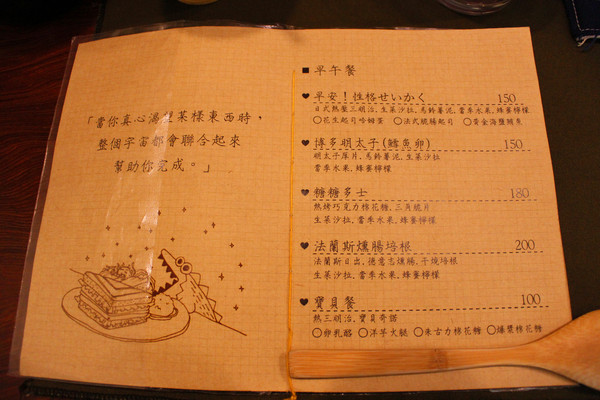 「當你真心渴望某樣東西時，
整個宇宙都會聯合起來
幫助你完成。」
■ 早午餐
♥ 早安！性格せいかく 150
日式熱壓三明治、生菜沙拉、馬鈴薯泥、當季水果、蜂蜜檸檬
○花生起司哈姆蛋 ○法式脆腸起司 ○黃金海鹽鯛魚
♥ 博多明太子(鱈魚卵) 150
明太子厚片、馬鈴薯泥、生菜沙拉
當季水果、蜂蜜檸檬
♥ 糖糖多士 180
熱烤巧克力棉花糖、三角脆片
生菜沙拉、當季水果、蜂蜜檸檬
♥ 法蘭斯燻腸培根 200
法蘭斯日出、德意志燻腸、干燒培根
生菜沙拉、當季水果、蜂蜜檸檬
♥ 寶貝餐 100
熱三明治、寶貝奇諾
○卵乳酪 ○洋芋火腿 ○朱古力棉花糖 ○爆漿棉花糖